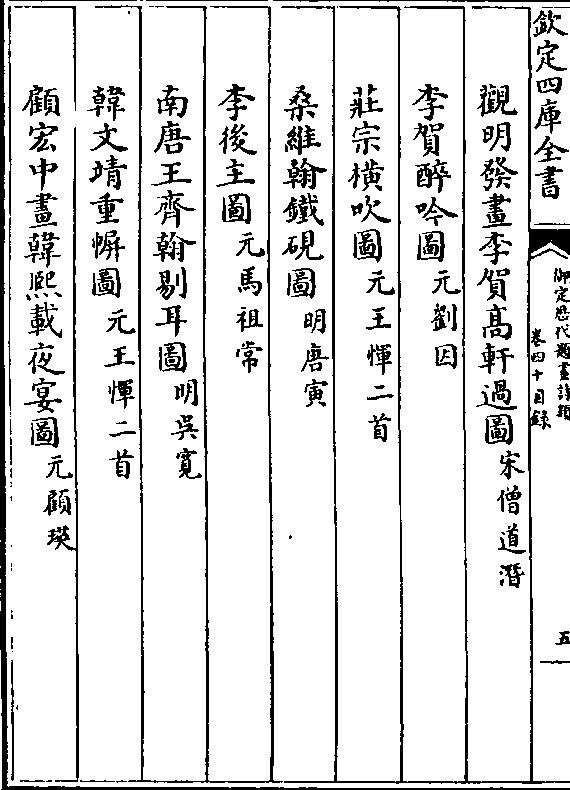 欽定四庫全書
御定歷代題畫詩類
卷四十目錄
五
觀明發畫李賀髙軒過圖 宋僧道潛
李賀醉吟圖 元劉因
莊宗横吹圖 元王惲二首
桑維翰鐵硯圖 明唐寅
李後主圖 元馬祖常
南唐王齊翰剔耳圖 明吳寛
韓文靖重幈圖 元王惲二首
顧宏中畫韓熙載夜宴圖 元顧瑛